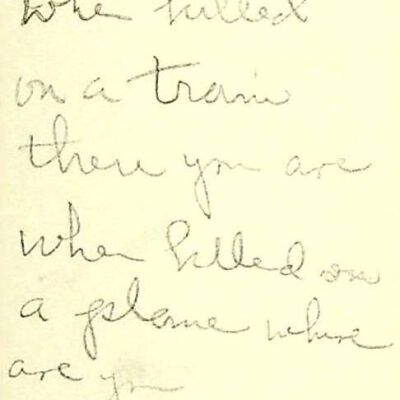 when killed
on a train
there you are
when killed on
a plane where
are you